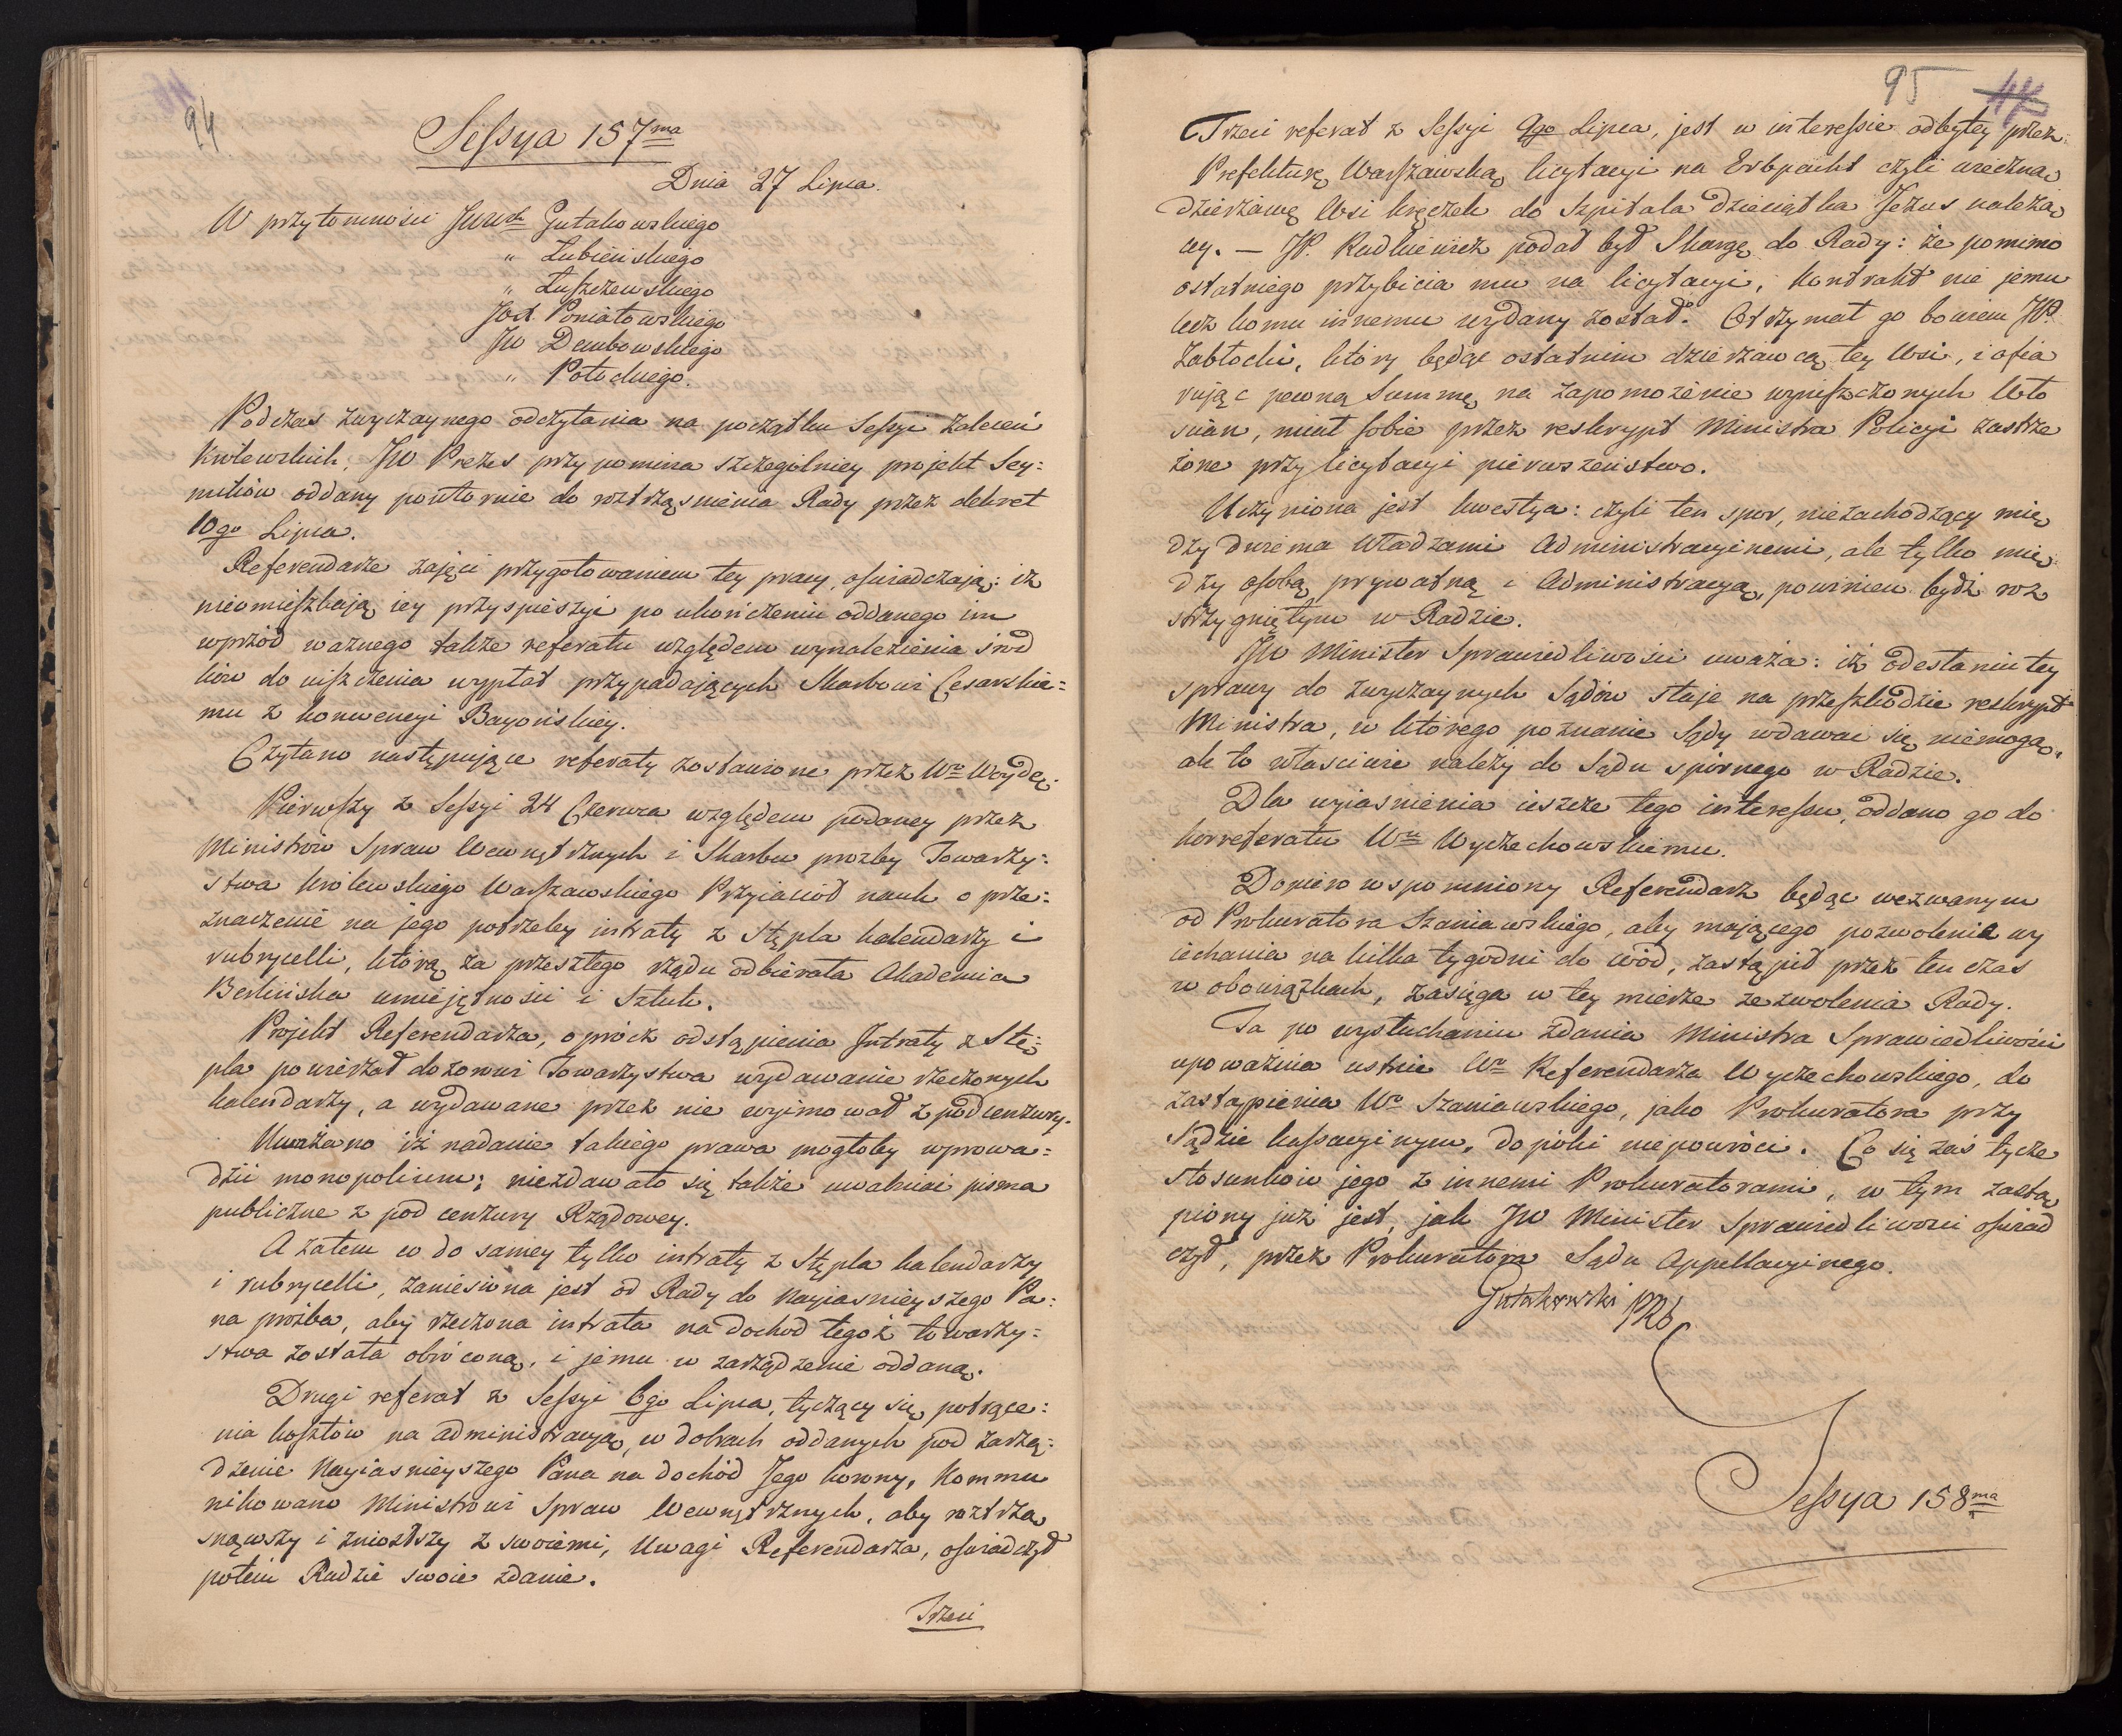 94
Sessya 157ma
Dnia 27 Lipca.
W przytomności JWWch Gutakowskiego
" Łubieńskiego
" Łuszczewskiego
Poniatowskiego
JW Dembowskiego
" Potockiego.
Podczas zwyczaynego odczytania na początku Sessyi Zaleceń
Królewskich, JW Prezes przypomina szczególniey projekt Sey=
mików oddany powtornie do roztrząsnienia Rady przez dekret
10go Lipca.
Referendarze zajęci przygotowaniem tey pracy, oświadczają: iż
nieomieszkają iey przyspieszyć po ukończeniu oddanego im
wprzód ważnego także referatu względem wynalezienia środ
ków do uiszczenia wypłat przypadających Skarbowi Cesarskie=
mu z konwencyi Bayońskiey.
Czytano następujące referaty zostawione przez Wo Woydę.
Pierwszy z Sessyi 24 Czerwca względem podaney przez
Ministrów Spraw Wewnętrznych i Skarbu prozby Towarzy=
stwa królewskiego Warszawskiego Przyiaciół nauk o prze=
znaczenie na jego potrzeby intraty z Stępla kalendarzy i
rubrycelli, którą za przeszłego rządu odbierała Akademia
Berlińska umiejętności i Sztuk.
Projekt Referendarza, oprócz odstąpienia Intraty z Stę=
pla powierzał dozorowi Towarzystwa wydawanie rzeczonych
kalendarzy, a wydawane przez nie wyimował z pod cenzury.
Uważano iż nadanie takiego prawa mogłoby wprowa=
dzić monopolium; niezdawało się także uwalniać pisma
publiczne z pod cenzury Rządowey.
A zatem co do samey tylko intraty z Stępla kalendarzy
i rubrycelli, zaniesiona jest od Rady do Nayiasnieyszego Pa=
na prośba, aby rzeczona intrata na dochod tegoż towarzy=
stwa została obrócona, i jemu w zarządzenie oddana.
Drugi referat z Sessyi 6go Lipca, tyczący się potrące=
nia kosztów na administracyą, w dobrach oddanych pod zarzą=
dzenie Nayiasnieyszego Pana na dochód Jego korony, Kommu
nikowano Ministrowi Spraw Wewnętrznych, aby roztrzą
snąwszy i zniosłszy z swoiemi, Uwagi Referendarza, oświadczył
potem Radzie swoie zdanie.
Trzeci
95
Trzeci referat z Sessyi 9go Lipca, jest w interessie odbytey przez
Prefekturę Warszawską licytacyi na Erbpacht czyli wieczną
dzierżawę Wsi Kręczek do Szpitala Dzieciątka Jezus należą
cey. — JP. Radkiewicz podał był Skargę do Rady: że pomimo
ostatniego przybicia mu na licytacyi, kontrakt nie jemu
lecz komu innemu wydany został. Otrzymał go bowiem JP.
Zabłocki, który będąc ostatnim dzierżawcą tey Wsi, i ofia
rując pewną Summę na zapomożenie wyniszczonych Wło
scian, miał sobie przez reskrypt Ministra Policyi zastrze
żone przy licytacyi pierwszeństwo.
Uczyniona jest kwestya: czyli ten spor, niezachodzący mię
dzy dwiema Władzami Administracyinemi, ale tylko mię
dzy osobą prywatną i Administracyą, powinien bydź roz
strzygniętym w Radzie.
JW Minister Sprawiedliwości uważa: iż odesłaniu tey
sprawy do zwyczaynych Sądów staje na przeszkodzie reskrypt
Ministra, w którego poznanie Sądy wdawać się niemogą,
ale to właściwie należy do Sądu spornego w Radzie.
Dla wyiasnienia ieszcze tego interessu, oddano go do
korreferatu Wu Wyczechowskiemu.
Dopiero wspomniony Referendarz będąc wezwanym
od Prokuratora Szaniawskiego, aby mającego pozwolenie wy
iechania na kilka tygodni do wód, zastąpił przez ten czas
w obowiązkach, zasięga w tey mierze zezwolenia Rady.
Ta po wysłuchaniu zdania Ministra Sprawiedliwości
upoważnia ustnie Wo Referendarza Wyczechowskiego, do
zastąpienia Wo Szaniawskiego, jako Prokuratora przy
Sądzie kassacyinym, dopóki niepowróci. Co się zaś tycze
stosunków jego z innemi Prokuratorami, w tym zastą
piony już jest, jak JW Minister Sprawiedliwości oświad
czył, przez Prokuratora Sądu Appellacyinego.
Gutakowski
Sessya 158ma